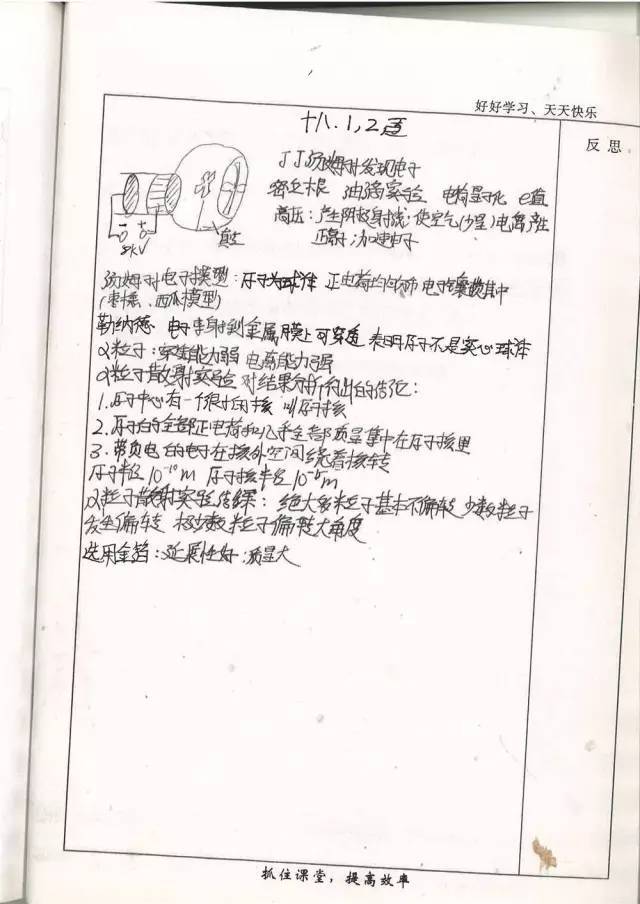 好好学习、天天快乐
反思
十八.1,2
JJ汤姆孙发现电子
密立根 油滴实验 电荷量子化 e值
高压:产生阴极射线:使空气(少量)电离产生
正离子;加速电子
8kV
真空
汤姆孙电子模型:原子为球体 正电荷均匀分布 电子镶嵌其中
(枣糕、西瓜模型)
勒纳德 电子束射到金属膜上可穿透 表明原子不是实心球体
α粒子:穿透能力弱 电离能力强
α粒子散射实验 对结果分析得出的结论:
1.原子中心有一个很小的核 叫原子核
2.原子的全部正电荷和几乎全部质量集中在原子核里
3.带负电的电子在核外空间绕着核转
原子半径10⁻¹⁰m 原子核半径10⁻¹⁵m
α粒子散射实验结果:绝大多粒子基本不偏转 少数粒子
发生偏转 极少数粒子偏转大角度
选用金箔:延展性好;质量大
抓住课堂,提高效率